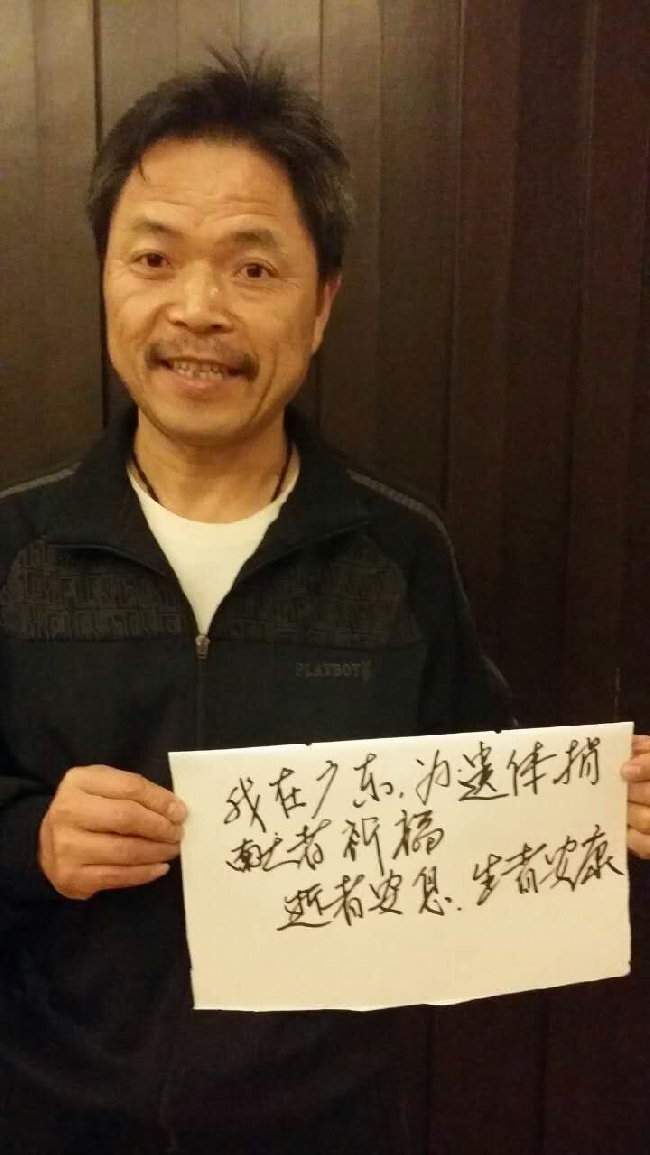 PLAYBOY
我在广东,为遗体捐
献者祈福
逝者安息.生者安康